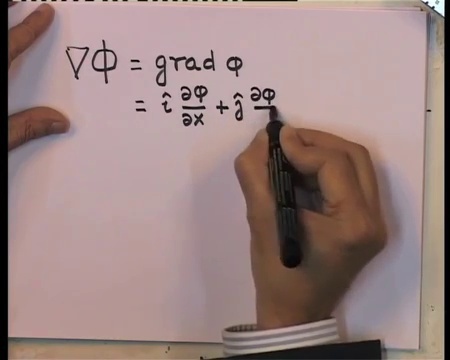 ∇Φ = grad φ
= î ∂φ/∂x + ĵ ∂φ/